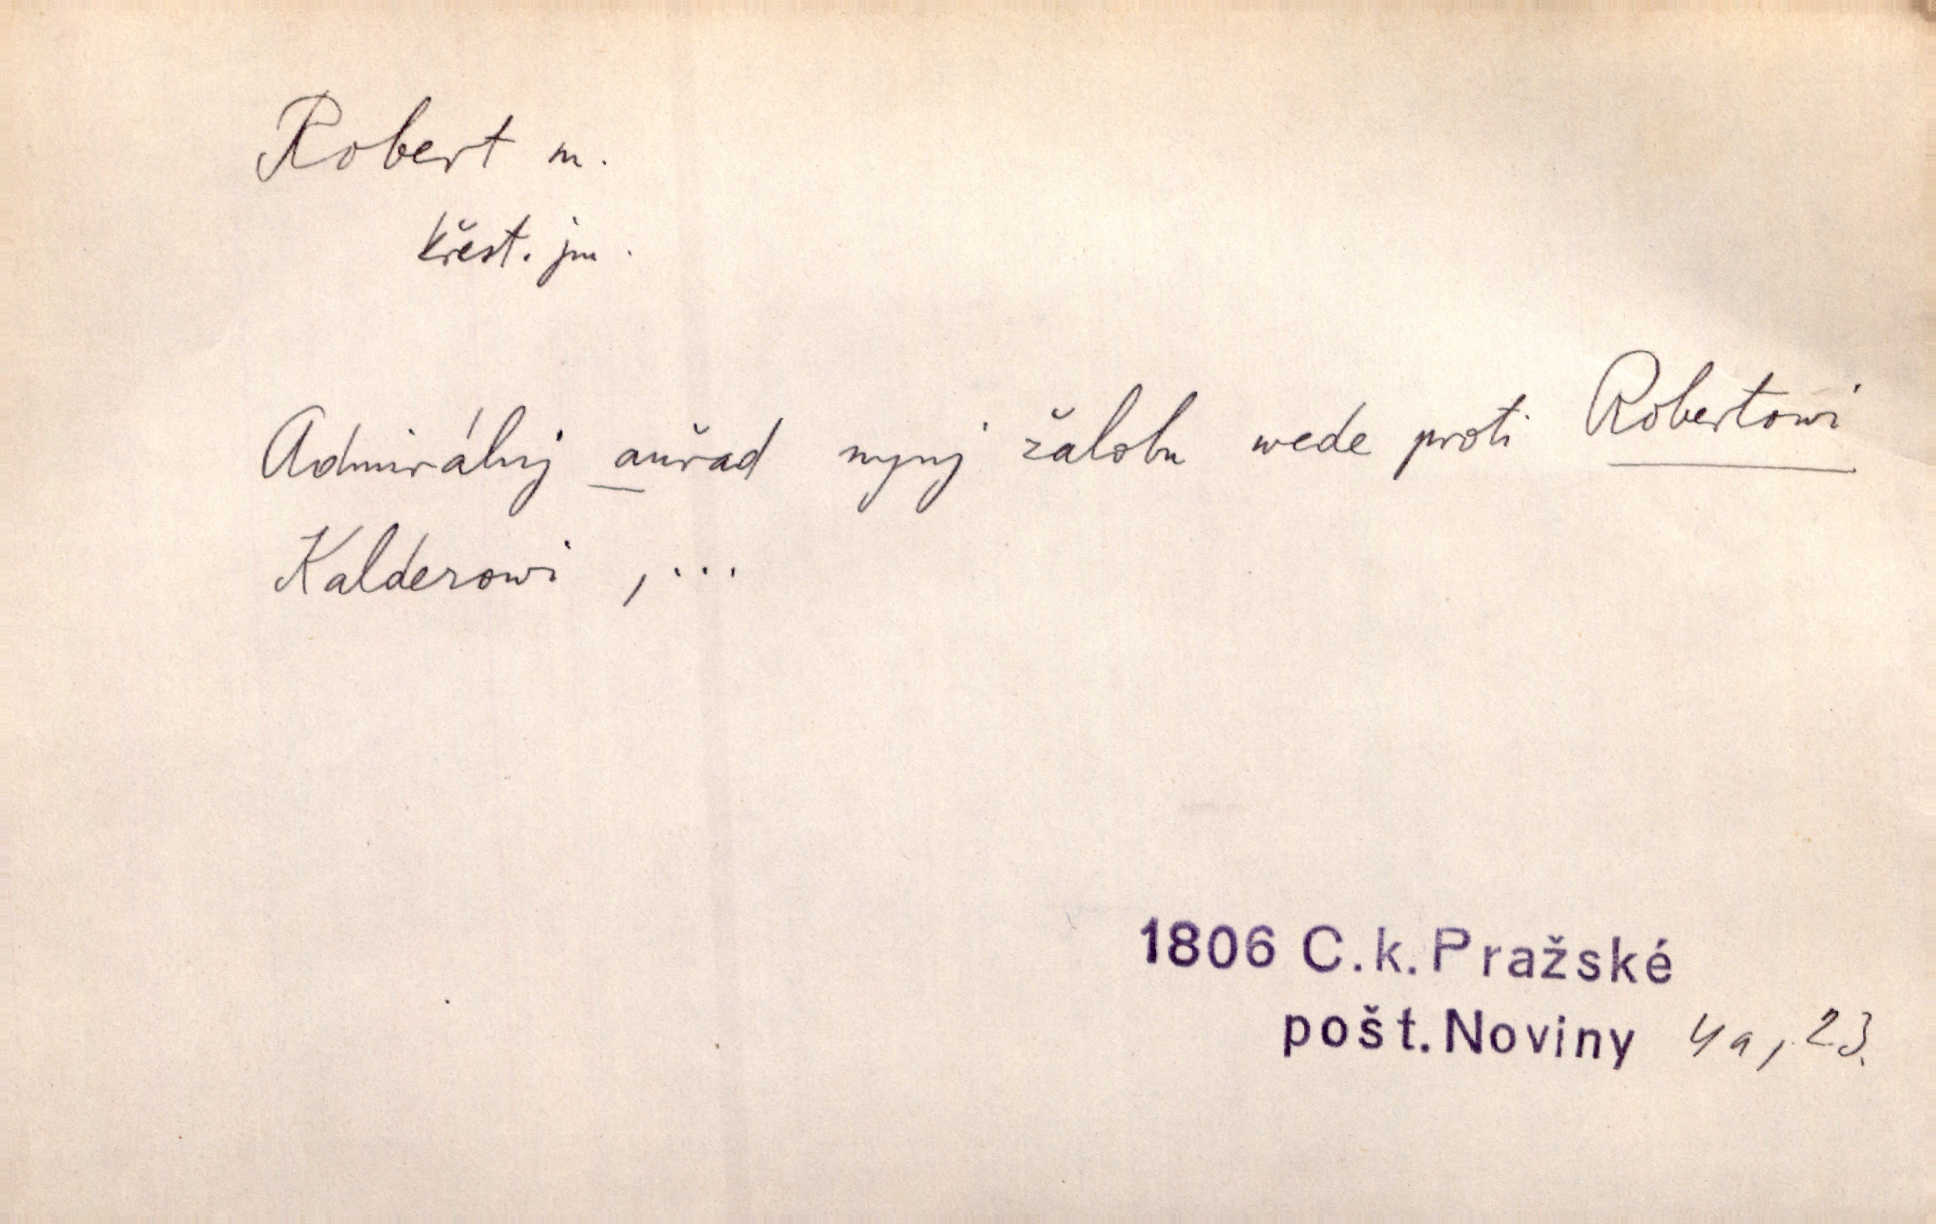 Robert m.
křest. jm.
Admirálnj auřad nynj žalobu wede proti Robertowi
Kalderowi , ...
1806 C.k. Pražské
pošt. Noviny 4a, 23.